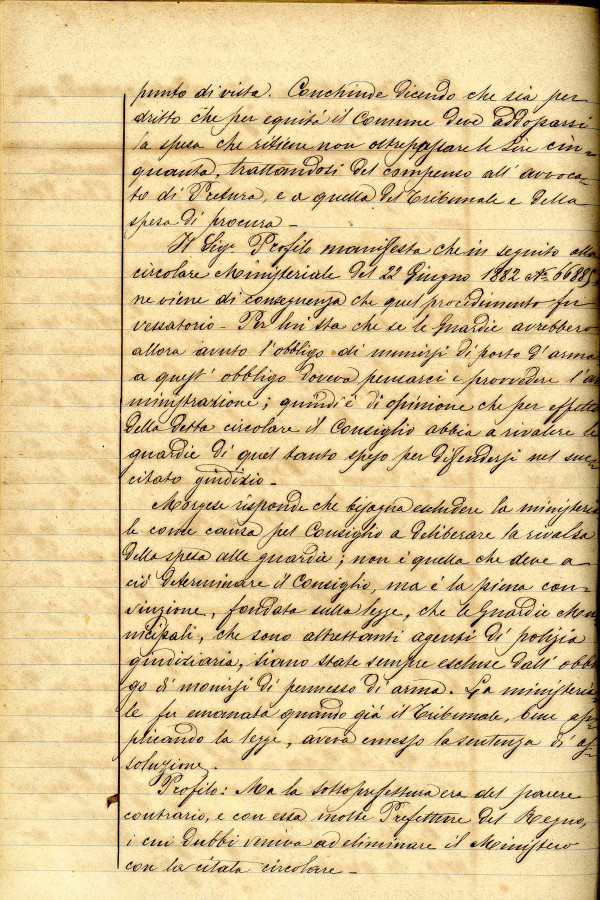 punto di vista. Conchiude dicendo che sia per
dritto che per equità il Comune deve addossarsi
la spesa che ritiene non oltrepassare le Lire cin-
quanta, trattandosi del compenso all'avvoca-
to di Pretura, e a quella del Tribunale e della
spesa di procura -
Il Sig. Profilo manifesta che in seguito alla
circolare Ministeriale del 22 Giugno 1882 No
ne viene di conseguenza che quel procedimento fu
vessatorio - Per lui sta che se le Guardie avrebbero
allora avuto l'obbligo di munirsi di porto d'arma
a quest'obbligo doveva pensarci e provvedere l'am
ministrazione; quindi è di opinione che per effetto
della detta circolare il Consiglio abbia a rivalere le
guardie di quel tanto speso per difendersi nel suc-
citato giudizio -
Morgese risponde che bisogna escludere la ministeria
le come causa pel Consiglio a deliberare la rivalsa
della spesa alle guardie; non è quella che deve a
ciò determinare il Consiglio, ma è la piena con-
vinzione, fondata sulla legge, che le Guardie Mu
nicipali, che sono altrettanti agenti di polizia
giudiziaria, siano state sempre escluse dall'obbli
go di monirsi di permesso di arma. La ministeria
le fu emanata quando già il Tribunale, bene ap-
plicando la legge, aveva emesso la sentenza di as-
soluzione.
Profilo: Ma la sottoprefettura era del parere
contrario, e con essa molte Prefetture del Regno,
i cui dubbi veniva ad eliminare il Ministero
con la citata circolare -